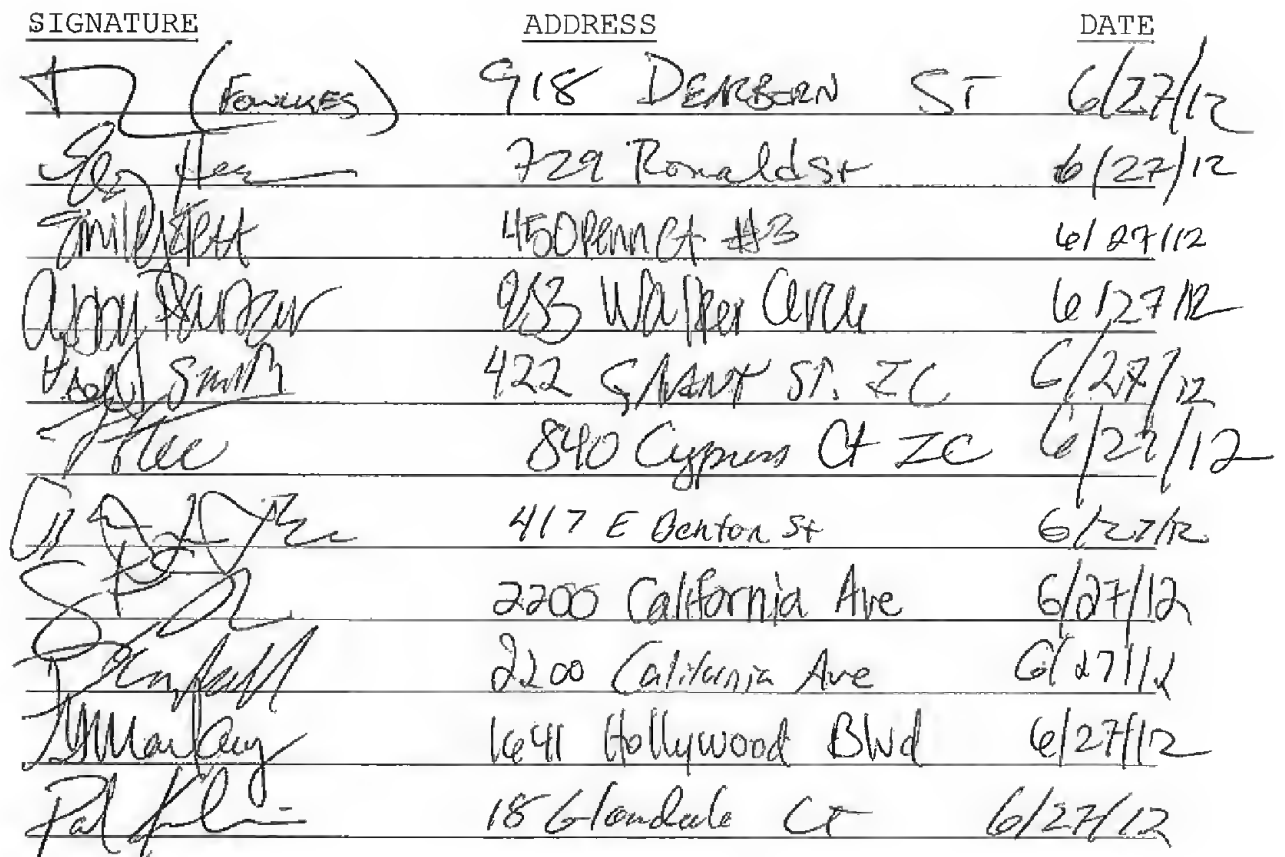 SIGNATURE ADDRESS DATE
(FOWLKES) 918 DEARBORN ST 6/27/12
729 Ronald St 6/27/12
Emily Jett 450 Penn Ct #3 6/27/12
Abby 953 Walker Circle 6/27/12
Smith 422 GRANT ST. IC 6/27/12
840 Cypress Ct IC 6/27/12
417 E Benton St 6/27/12
2200 California Ave 6/27/12
2200 California Ave 6/27/12
1641 Hollywood Blvd 6/27/12
Pat 18 Glendale Ct 6/27/12